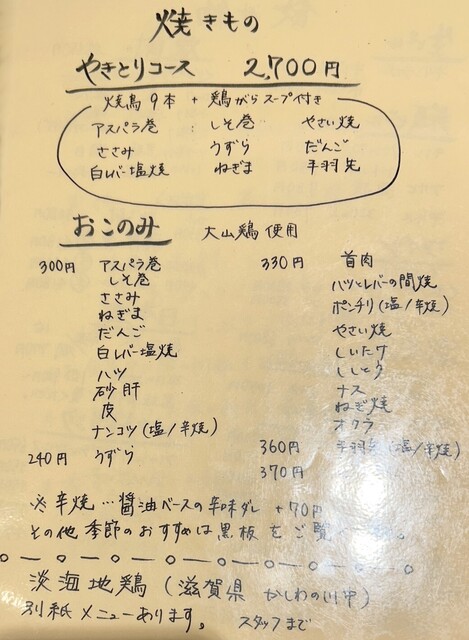 焼きもの
やきとりコース 2,700円
焼鳥9本 + 鶏がらスープ付き
アスパラ巻 しそ巻 やさい焼
ささみ うずら だんご
白レバー塩焼 ねぎま 手羽先
おこのみ 大山鶏使用
300円 アスパラ巻
しそ巻
ささみ
ねぎま
だんご
白レバー塩焼
ハツ
砂肝
皮
ナンコツ(塩/辛焼)
240円 うずら
330円 首肉
ハツとレバーの間焼
ボンチリ(塩/辛焼)
やさい焼
しいたけ
ししとう
ナス
ねぎ焼
オクラ
360円 手羽先(塩/辛焼)
370円
※辛焼…醤油ベースの辛味ダレ +70円
その他季節のおすすめは黒板をご覧
淡海地鶏(滋賀県 かしわの川中)
別紙メニューあります。 スタッフまで